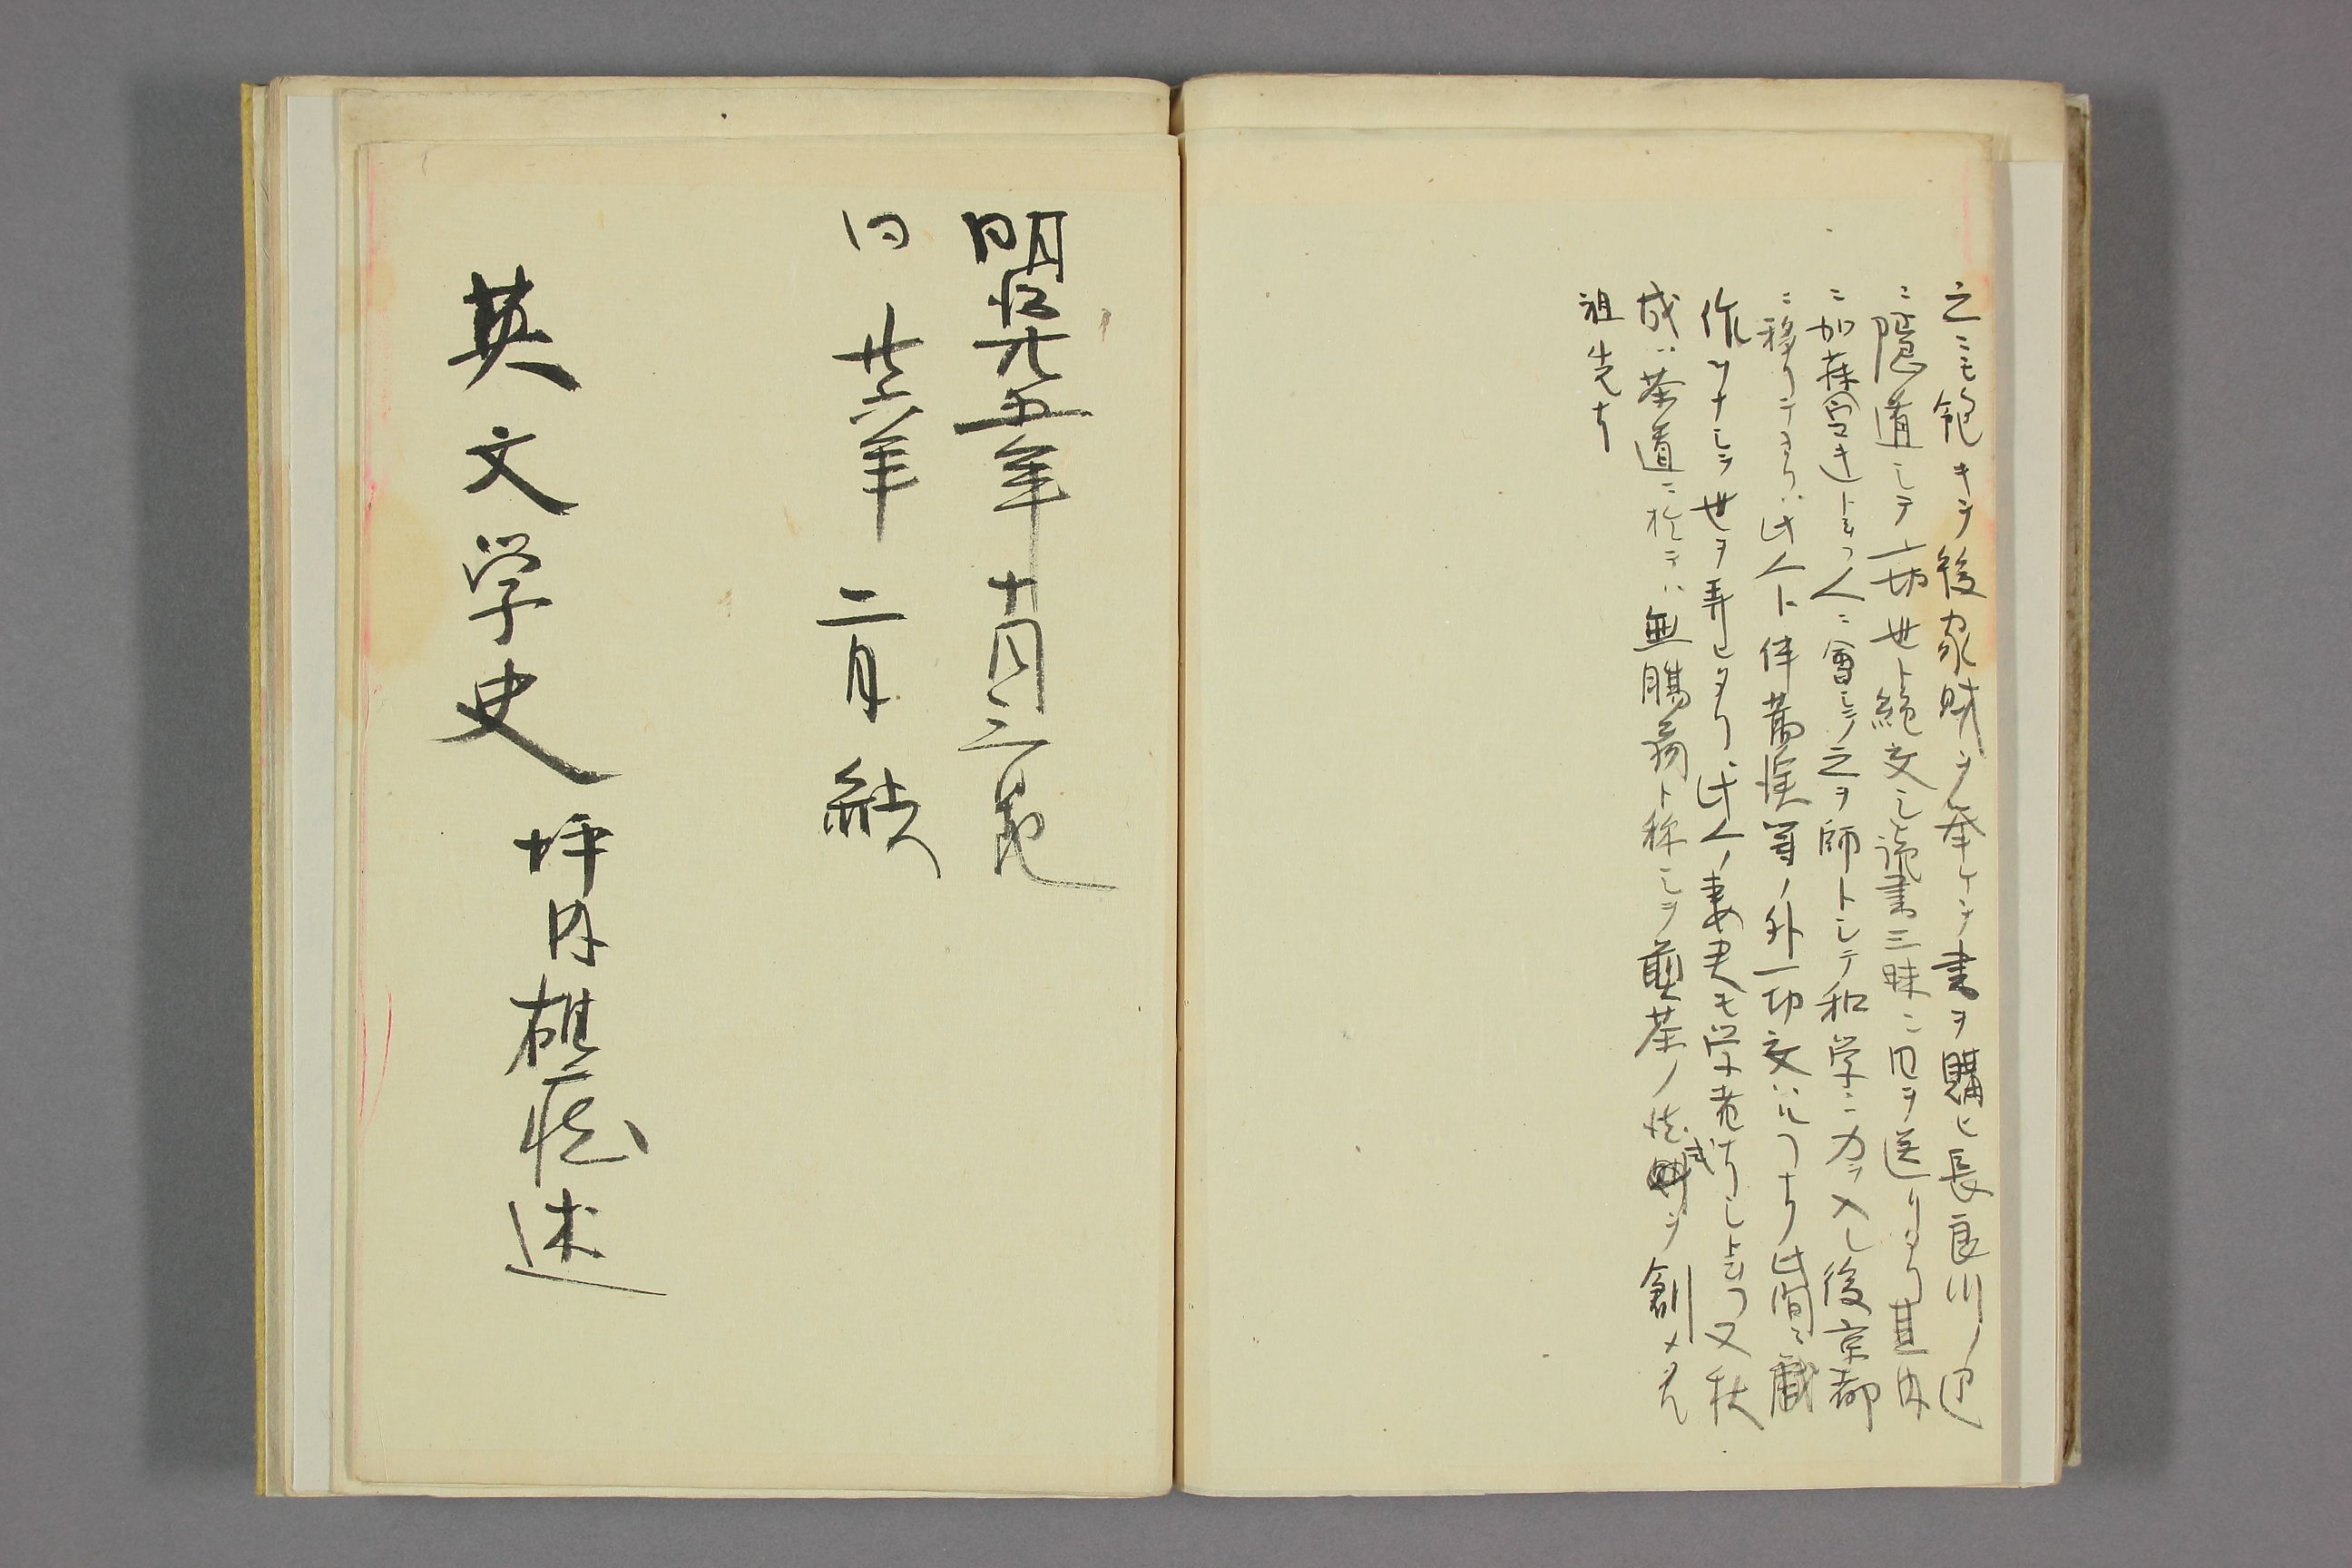 之ニモ飽キテ後家財ヲ挙ケテ書ヲ購ヒ長良川ノ辺
ニ隠遁シテ一切世ト絶交シ読書三昧ニ日ヲ送リタリ其内
ニ加藤宇万伎ト云フ人ニ會シテ之ヲ師トシテ和学ニ力ヲ入レ後京都
ニ移リテヨリハ此人ト伴蒿蹊等ノ外一切交ハルコトナク此間ニ戯
作ヲナシテ世ヲ弄ヒタリ此人ノ妻モ学者ナリシト云フ又秋
成ハ茶道ニ於テハ無腸翁ト称シテ煎茶ノ式ヲ創メタル
祖先ナリ
明治廿五年十月二
同廿六年二月
英文学史
坪内雄蔵述